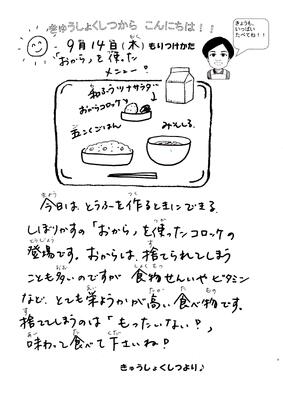 きゅうしょくしつから こんにちは!!
きょうも、
いっぱい
たべてね!!
9月14日(木) もりつけかた
「おから」を使った
メニュー?
和ふうツナサラダ
おからコロッケ
五こくごはん
みそしる
今日は、とうふを作るときにできる
しぼりかすの「おから」を使ったコロッケの
登場です。おからは、捨てられてしまう
ことも多いのですが 食物せんいやビタミン
など、とても栄ようかが高い食べ物です。
捨ててしまうのは「もったいない?」
味わって食べて下さいね?
きゅうしょくしつより♪